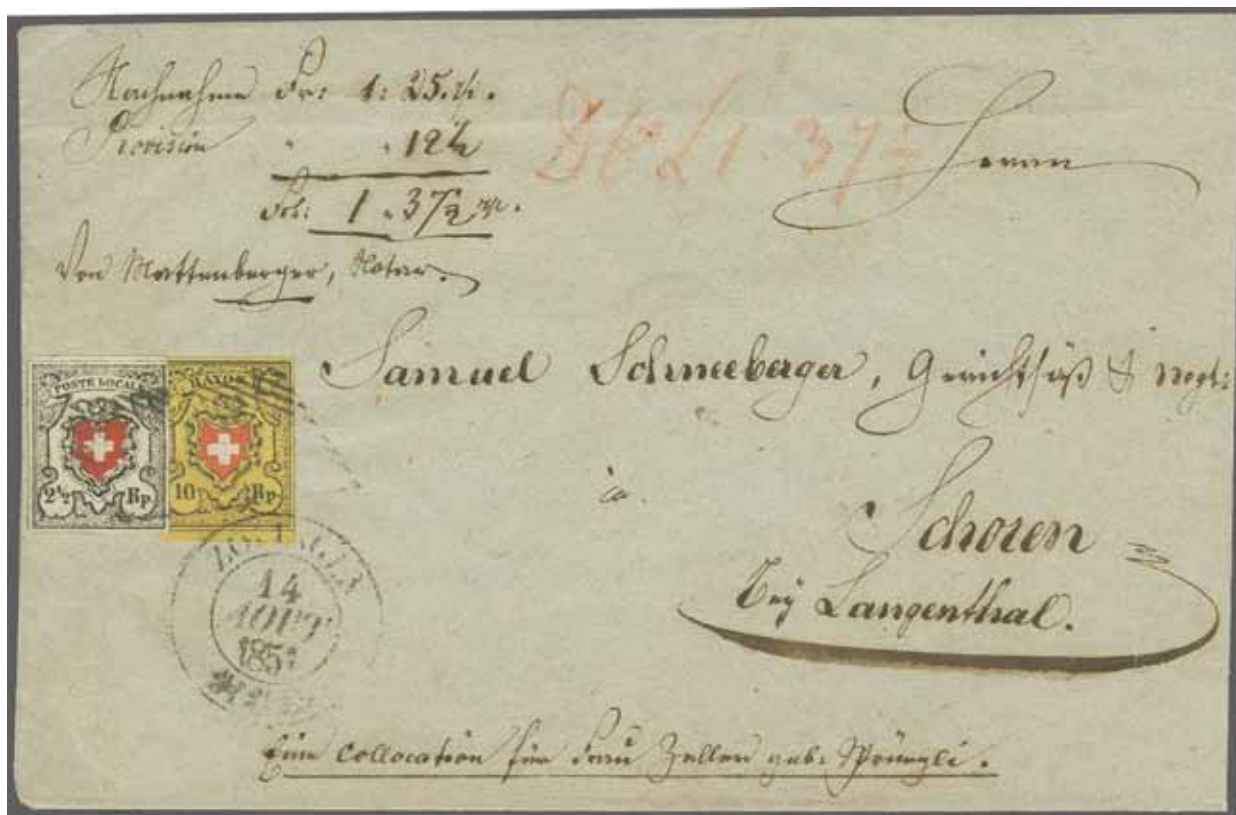 Nachnahme Fr: 1: 25. rp.
Provision " " 12½
Frk: 1 " 37½ rp.
Von Mattenberger, Notar.
Frk 1. 37½
Herrn
Samuel Schneeberger, Gerichtsäß &
in
Schoren
bey Langenthal.
POSTE LOCALE
2½ Rp
RAYON II
10 Rp
ZOFINGEN
14
AOUT
1851
Eine Collocation für Frau Zeller geb: Sprüngli.